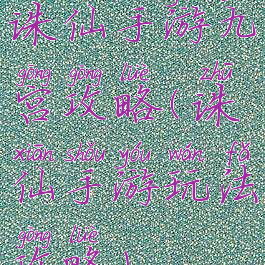 诛仙手游九
gōng gōng lüè zhū
宫攻略(诛
xiān shǒu yóu wán fǎ
仙手游玩法
gōng lüè
攻略)